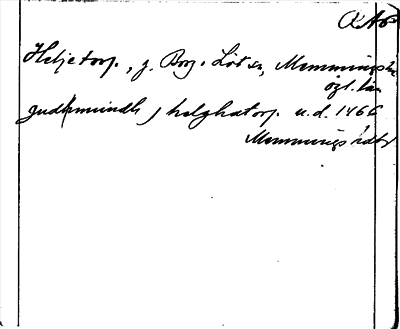 RAp
Heljetorp, g. Borg. Löt sn, Memmings hd
ögl. län
gudhmundh j helghatorp u.d. 1466
Memmings hdbr